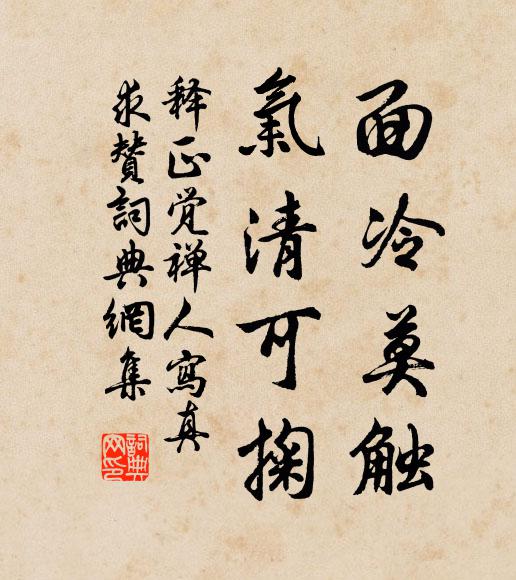 面冷莫触
氣清可掬
释正觉禅人寫真
求赞詞典網集
詞典网印